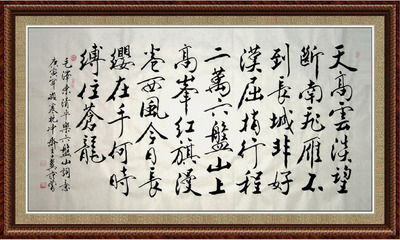 天高雲淡望
斷南飛雁不
到長城非好
漢屈指行程
二萬六盤山上
高峯紅旗漫
卷西風今日長
纓在手何時
縛住蒼龍
毛澤東清平樂六盤山詞意
庚寅年